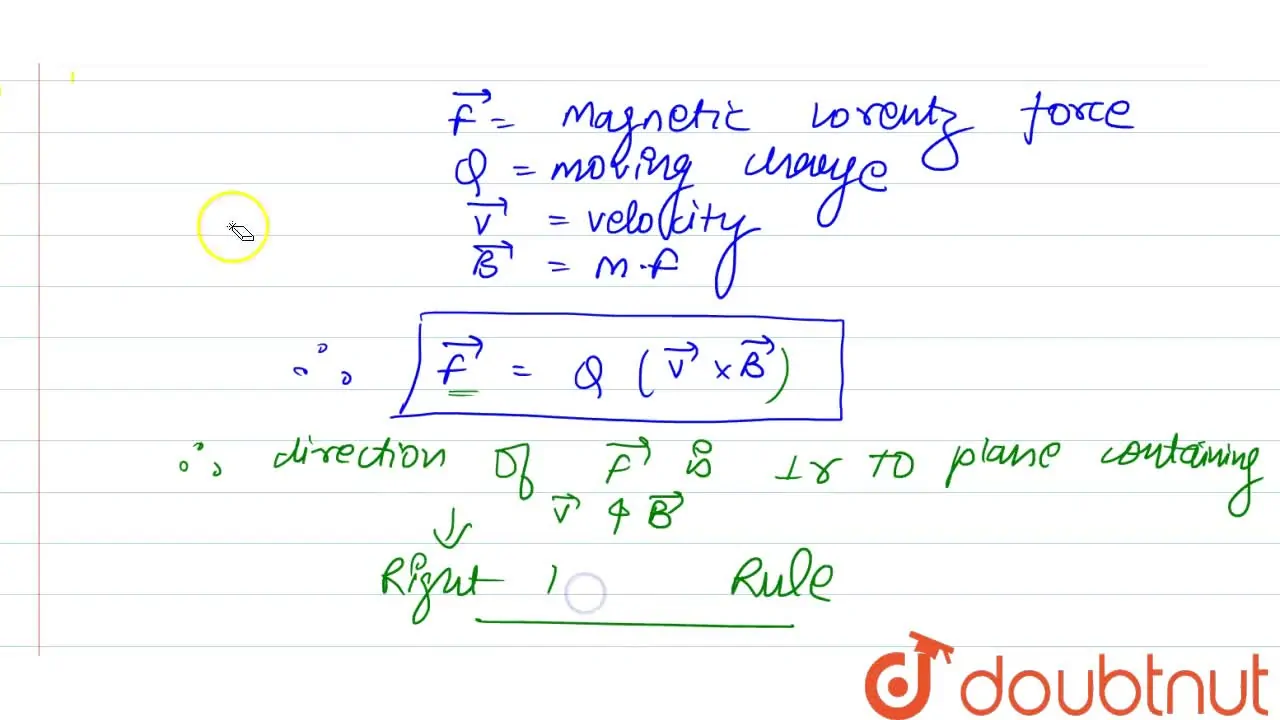 F⃗ = Magnetic Lorentz force
Q = moving charge
V⃗ = velocity
B⃗ = m.f
∴ F⃗ = Q (V⃗ × B⃗)
∴ direction Of F⃗ is ⊥r TO plane containing
V⃗ & B⃗
Right Rule
doubtnut